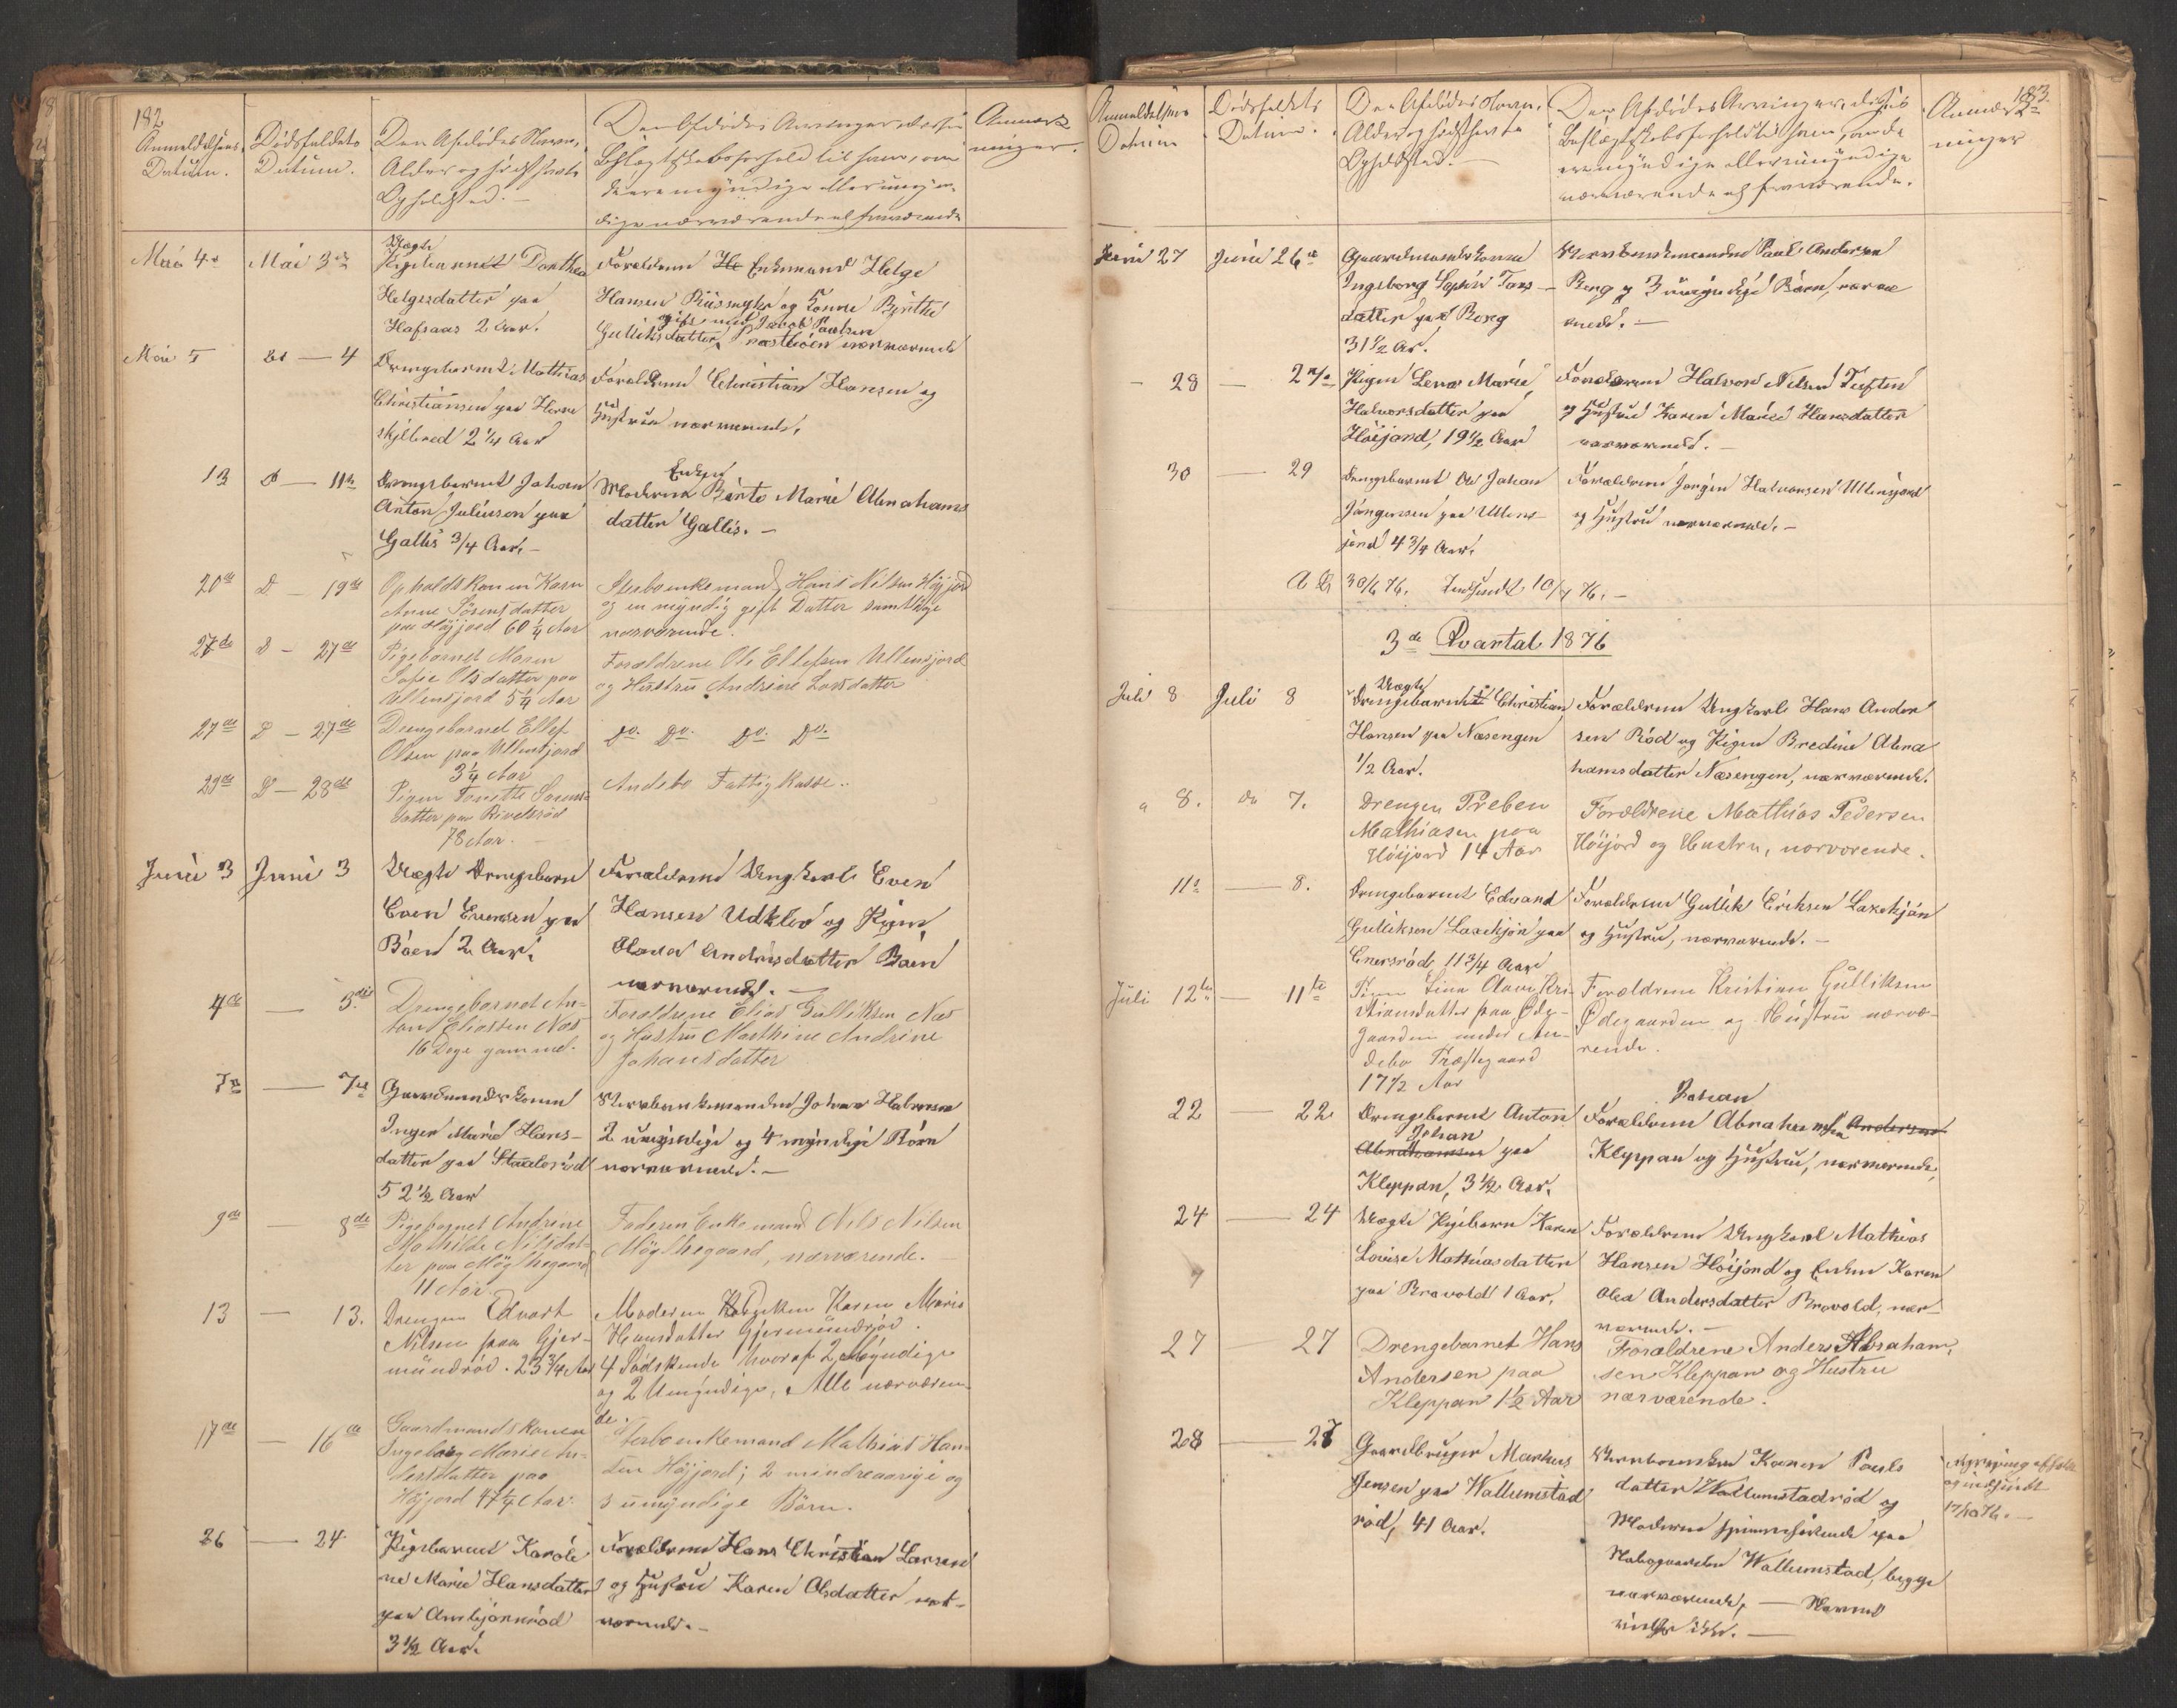 182
Anmeldelsens
Datum.
Dødsfaldets
Datum.
Den Afdødes Navn,
Alder og sidst havte
Opholdsted. —
Den Afdødes Arvinger, disses
Beslægtskabsforhold til ham, om
de ere myndige eller umyn-
dige nærværende el fraværende
Anmærk
ninger.
Mai 4de
Mai 3die
Uægte
Pigebarnet Dorthea
Helgesdatter paa
Hafsaas 2 Aar.
Forældrene He Enkemand Helge
Hansen og Konne Birthe
gift med Jacob Paulsen
Gulliksdatter, Præstbøen nærværende
Mai 5
do — 4
Drengebarnet Mathias
Christiansen paa Herre
skjilbred 2 1/4 Aar
Forældrene Christian Hansen og
Hustru nærværende.
13
D — 11te
Drengebarnet Johan
Anton Juliusen paa
Gallis 3/4 Aar. —
Enken
Moderen Birte Marie Abrahams
datter Gallis. —
20de
D — 19de
Opholdskonen Karen
Anne Sørensdatter
paa Høyjord 60 1/4 Aar
Sterboenkemand Hans Nilsen Høyjord
og en myndig gift Datter samtlige
nærværende.
27de
D — 27de
Pigebarnet Maren
Sofie Olsdatter paa
Ullensjord 5 1/4 Aar
Forældrene Ole Ellefsen Ullensjord
og Hustru Andrine Larsdatter
27de
D — 27de
Drengebarnet Ellef
Olsen paa Ullensjord
3 1/4 Aar
Do. Do. Do. Do.
29de
D — 28de
Pigen Torette Sørens-
datter paa Rivelsrød
78 Aar.
Andebo Fattigkasse.
Juni 3
Juni 3
Uægte Drengebarn
Even Evensen paa
Bøen 2 Aar.
Forældrene Ungkarl Even
Hansen Udklev og Pigen
Olava Andrisdatter Bøen
nærværende. —
4de
— 3die
Drengebarnet An-
ton Eliassen Næs
16 Dage gammel.
Forældrene Elias Gulliksen Næs
og Hustru Marthine Andrine
Johansdatter
7de
— 7de
Gaardmandskonen
Inger Marie Hans-
datter paa Staalerød
52 1/2 Aar
Sterboenkemanden Johan Halvorsen
2 umyndige og 4 myndige Børn
nærværende. —
9de
— 8de
Pigebarnet Andrine
Mathilde Nilsdat-
ter paa Møglhegaard
11 Aar
Faderen Enkemand Nils Nilsen
Møglhegaard, nærværende. —
13
— 13.
Drengen Edvart
Nilsen paa Gjer-
mundrød. 23 3/4 Aar
Moderen Enken Karen Marie
Hansdatter Gjermundrød.
4 Sødskende hvoraf 2 Myndige
og 2 Umyndige, Alle nærværen-
de.
17de
— 16de
Gaardmandskonen
Ingeborg Marie An-
dersdatter paa
Høyjord 47 1/4 Aar.
Sterboenkemand Mathias Han-
sen Høyjord; 2 mindreaarige og
3 umyndige Børn.
26
— 24
Pigebarnet Karoli
ne Marie Hansdatter
paa Ambjørnrød
3 1/2 Aar.
Forældrene Hans Christian Larsen
og Hustru Karen Olsdatter nær-
værende. —
183.
Anmeldelsens
Datum
Dødsfaldets
Datum.
Den Afdødes Navn,
Alder og sidsthavte
Opholdsted. —
Den Afdødes Arvinger, disses
Beslægtskabsforhold til ham, om de
ere myndige eller umyndige
nærværende el fraværende.
Anmærk-
ninger
Juni 27
Juni 26de
Gaardmandskonen
Ingeborg Sophie Tors-
datter paa Berg
31 1/2 Ar.
Sterboenkemanden Paul Andersen
Berg og 3 umyndige Børn, nærvæ
rende. —
— 28
— 27de
Pigen Lena Marie
Halvorsdatter paa
Høijord, 19 1/2 Aar
Forældrene Halvor Nilsen Tuften
og Hustru Karen Marie Hansdatter
nærværende. —
30
— 29
Drengebarnet Ole Johan
Jørgensen paa Ullens-
jord 4 3/4 Aar.
Forældrene Jørgen Halvorsen Ullensjord
og Hustru nærværende. —
A B 30/6 76. Indsendt 10/7 76. —
3de Qvartal 1876
Juli 8
Juli 8
Uægte
Drengebarnet Christian
Hansen paa Næsengen
1/2 Aar.
Forældrene Ungkarl Hans Ander
sen Rød og Pigen Bredine Abra
hamsdatter Næsengen, nærværende.
" 8.
do 7.
Drengen Preben
Mathiasen paa
Høijord 14 Aar
Forældrene Mathias Pedersen
Høijord og Hustru, nærværende.
11te
— 8.
Drengebarnet Edvard
Gulliksen Laxekjøn paa
Enersrød 11 3/4 Aar
Forældrene Gullik Eriksen Laxekjøn
og Hustru, nærværende. —
Juli 12te
— 11te
Pigen Lina Aave Kri-
stiansdatter paa Øde-
gaarden under An-
debo Præstegaard
17 1/2 Aar
Forældrene Kristian Gulliksen
Ødegaarden og Hustru nærvæ-
rende.
22
— 22
Drengebarnet Anton
Johan
Abrahamsen paa
Kleppan, 3 1/2 Aar.
Johan
Forældrene Abrahamsen Andersen
Kleppan og Hustru, nærværende,
24
— 24
Uægte Pigebarn Karen
Lovise Mathiasdatter
paa Bravold 1 Aar,
Forældrene Ungkarl Mathias
Hansen Høijord og Enken Karen
Olea Andersdatter Bravold, nær-
værende. —
27
— 27
Drengebarnet Hans
Andersen paa
Kleppan 1 1/2 Aar
Forældrene Anders Abraham-
sen Kleppan og Hustru
nærværende.
28
— 27
Gaardbruger Markus
Jensen paa Wallumstad
rød, 41 Aar.
Sterboenken Karen Pouls
datter Wallumstadrød og
Moderen paa
Nabogaarden Wallumstad, begge
nærværende, —
og indsendt
17/10 76. —